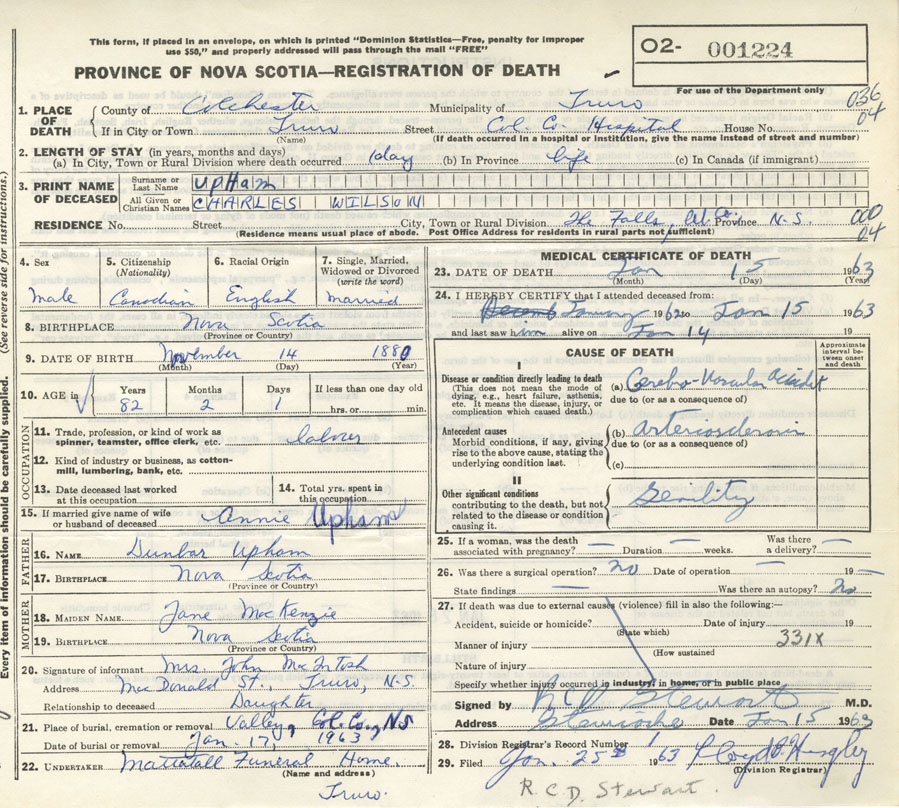 This form, if placed in an envelope, on which is printed "Dominion Statistics—Free, penalty for improper
use $50," and properly addressed will pass through the mail "FREE"
O2- 001224
PROVINCE OF NOVA SCOTIA—REGISTRATION OF DEATH
For use of the Department only
1. PLACE OF DEATH County of Colchester Municipality of Truro 036
If in City or Town Truro Street Col. Co. Hospital House No. 04
(Name) (If death occurred in a hospital or institution, give the name instead of street and number)
2. LENGTH OF STAY (in years, months and days)
(a) In City, Town or Rural Division where death occurred 1 day (b) In Province life (c) In Canada (if immigrant)
3. PRINT NAME OF DECEASED Surname or Last Name UPHAM
All Given or Christian Names CHARLES WILSON
RESIDENCE No. Street City, Town or Rural Division The Falls, Col. Co. Province N-S. 000 04
(Residence means usual place of abode. Post Office Address for residents in rural parts not sufficient)
4. Sex Male
5. Citizenship (Nationality) Canadian
6. Racial Origin English
7. Single, Married, Widowed or Divorced (write the word) married
8. BIRTHPLACE Nova Scotia
(Province or Country)
9. DATE OF BIRTH November 14 1880
(Month) (Day) (Year)
10. AGE in Years 82 Months 2 Days 1 If less than one day old hrs. or min.
OCCUPATION
11. Trade, profession, or kind of work as spinner, teamster, office clerk, etc. labourer
12. Kind of industry or business, as cotton-mill, lumbering, bank, etc.
13. Date deceased last worked at this occupation
14. Total yrs. spent in this occupation
15. If married give name of wife or husband of deceased Annie Upham
FATHER
16. NAME Dunbar Upham
17. BIRTHPLACE Nova Scotia
(Province or Country)
MOTHER
18. MAIDEN NAME Jane MacKenzie
19. BIRTHPLACE Nova Scotia
(Province or Country)
20. Signature of informant Mrs. John McIntosh
Address MacDonald St., Truro, N-S.
Relationship to deceased Daughter
21. Place of burial, cremation or removal Valley, Col. Co., N.S
Date of burial or removal Jan. 17, 1963
22. UNDERTAKER Mattatall Funeral Home.
(Name and address)
Truro.
MEDICAL CERTIFICATE OF DEATH
23. DATE OF DEATH Jan 15 1963
(Month) (Day) (Year)
24. I HEREBY CERTIFY that I attended deceased from:
January 1962 to Jan 15 1963
and last saw him alive on Jan 14 19
CAUSE OF DEATH
Approximate interval between onset and death
I
Disease or condition directly leading to death
(This does not mean the mode of dying, e.g., heart failure, asthenia, etc. It means the disease, injury, or complication which caused death.)
(a) Cerebro-Vascular Accident
due to (or as a consequence of)
Antecedent causes
Morbid conditions, if any, giving rise to the above cause, stating the underlying condition last.
(b) Arteriosclerosis
due to (or as a consequence of)
(c)
II
Other significant conditions
contributing to the death, but not related to the disease or condition causing it.
Senility
25. If a woman, was the death associated with pregnancy? — Duration — weeks. Was there a delivery? —
26. Was there a surgical operation? no Date of operation — 19 —
State findings — Was there an autopsy? No
27. If death was due to external causes (violence) fill in also the following:—
Accident, suicide or homicide? Date of injury 19
(State which)
Manner of injury 331X
(How sustained)
Nature of injury
Specify whether injury occurred in industry, in home, or in public place
Signed by R C D Stewart M.D.
Address Stewiacke Date Jan 15 1963
28. Division Registrar's Record Number 1
29. Filed Jan. 25th 1963
(Division Registrar)
R.C.D. Stewart.
(See reverse side for instructions.)
Every item of information should be carefully supplied.